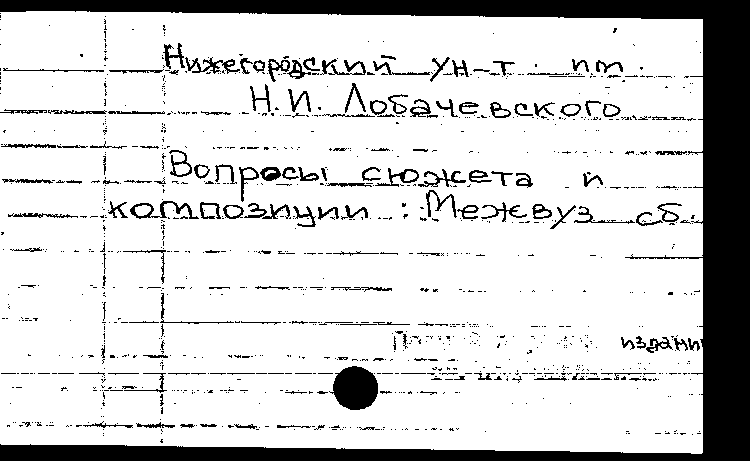 Нижегородский ун-т. им.
Н.И. Лобачевского
Вопросы сюжета и
композиции : Межвуз сб.
издани